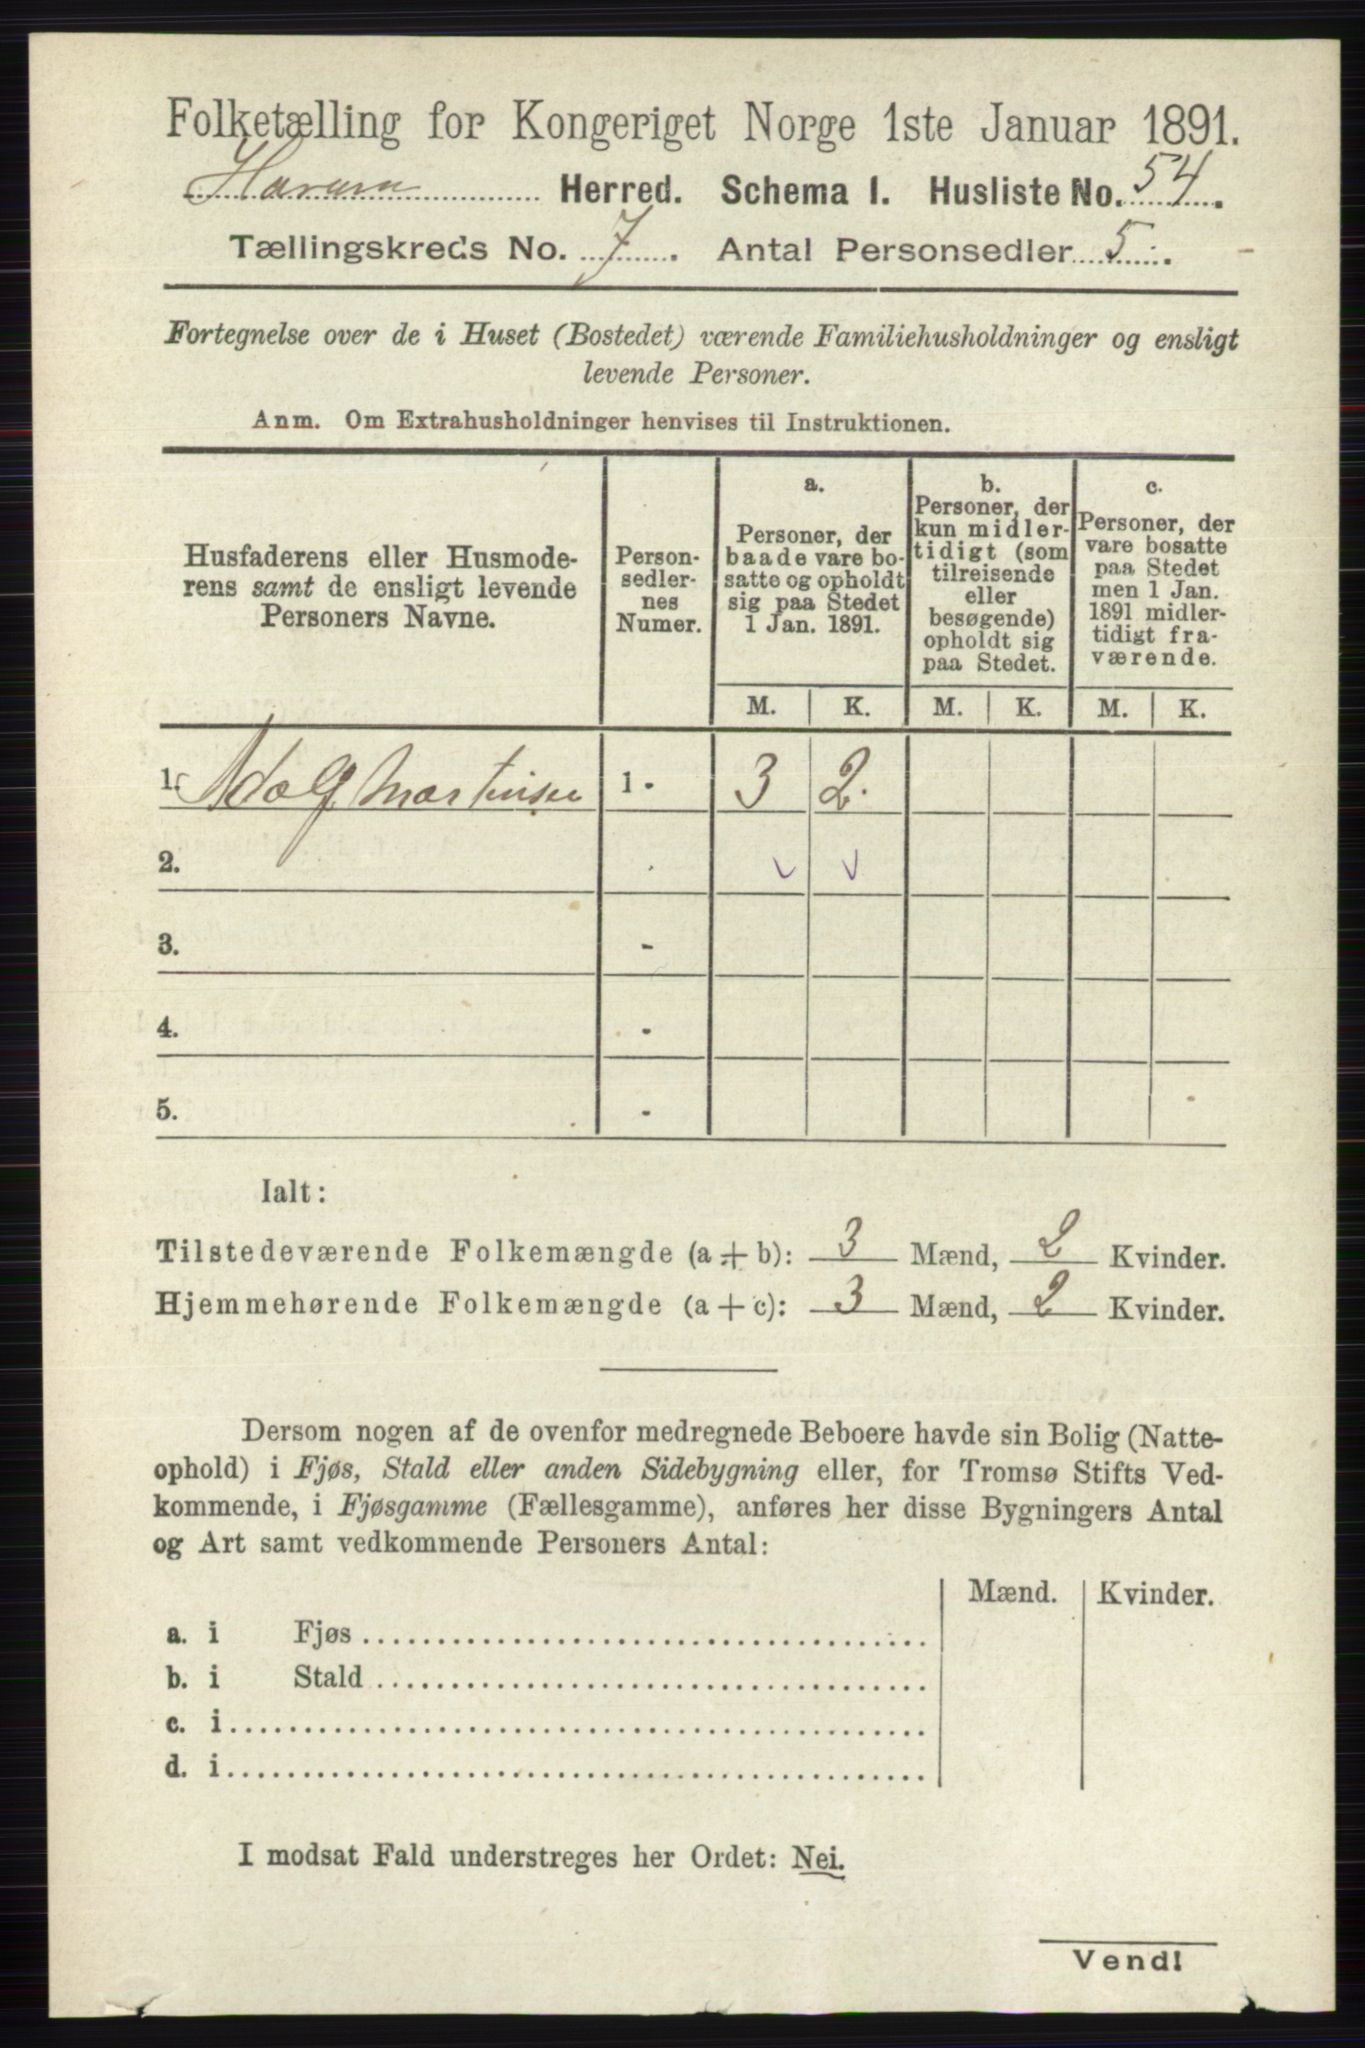 Folketælling for Kongeriget Norge 1ste Januar 1891.
Herred. Schema I. Husliste No. 54.
Tællingskreds No. 7. Antal Personsedler 5.
Fortegnelse over de i Huset (Bostedet) værende Familiehusholdninger og ensligt
levende Personer.
Anm. Om Extrahusholdninger henvises til Instruktionen.
Husfaderens eller Husmode-
rens samt de ensligt levende
Personers Navne.
Person-
sedler-
nes
Numer.
a.
Personer, der
baade vare bo-
satte og opholdt
sig paa Stedet
1 Jan. 1891.
b.
Personer, der
kun midler-
tidigt (som
tilreisende
eller
besøgende)
opholdt sig
paa Stedet.
c.
Personer, der
vare bosatte
paa Stedet
men 1 Jan.
1891 midler-
tidigt fra-
værende.
M. K. M. K. M. K.
1. Adolf Martinsen 1 - 3 2.
2. -
3. -
4. -
5. -
Ialt:
Tilstedeværende Folkemængde (a + b): 3 Mænd, 2 Kvinder.
Hjemmehørende Folkemængde (a + c): 3 Mænd, 2 Kvinder.
Dersom nogen af de ovenfor medregnede Beboere havde sin Bolig (Natte-
ophold) i Fjøs, Stald eller anden Sidebygning eller, for Tromsø Stifts Ved-
kommende, i Fjøsgamme (Fællesgamme), anføres her disse Bygningers Antal
og Art samt vedkommende Personers Antal:
Mænd. Kvinder.
a. i Fjøs
b. i Stald
c. i
d. i
I modsat Fald understreges her Ordet: Nei.
Vend!